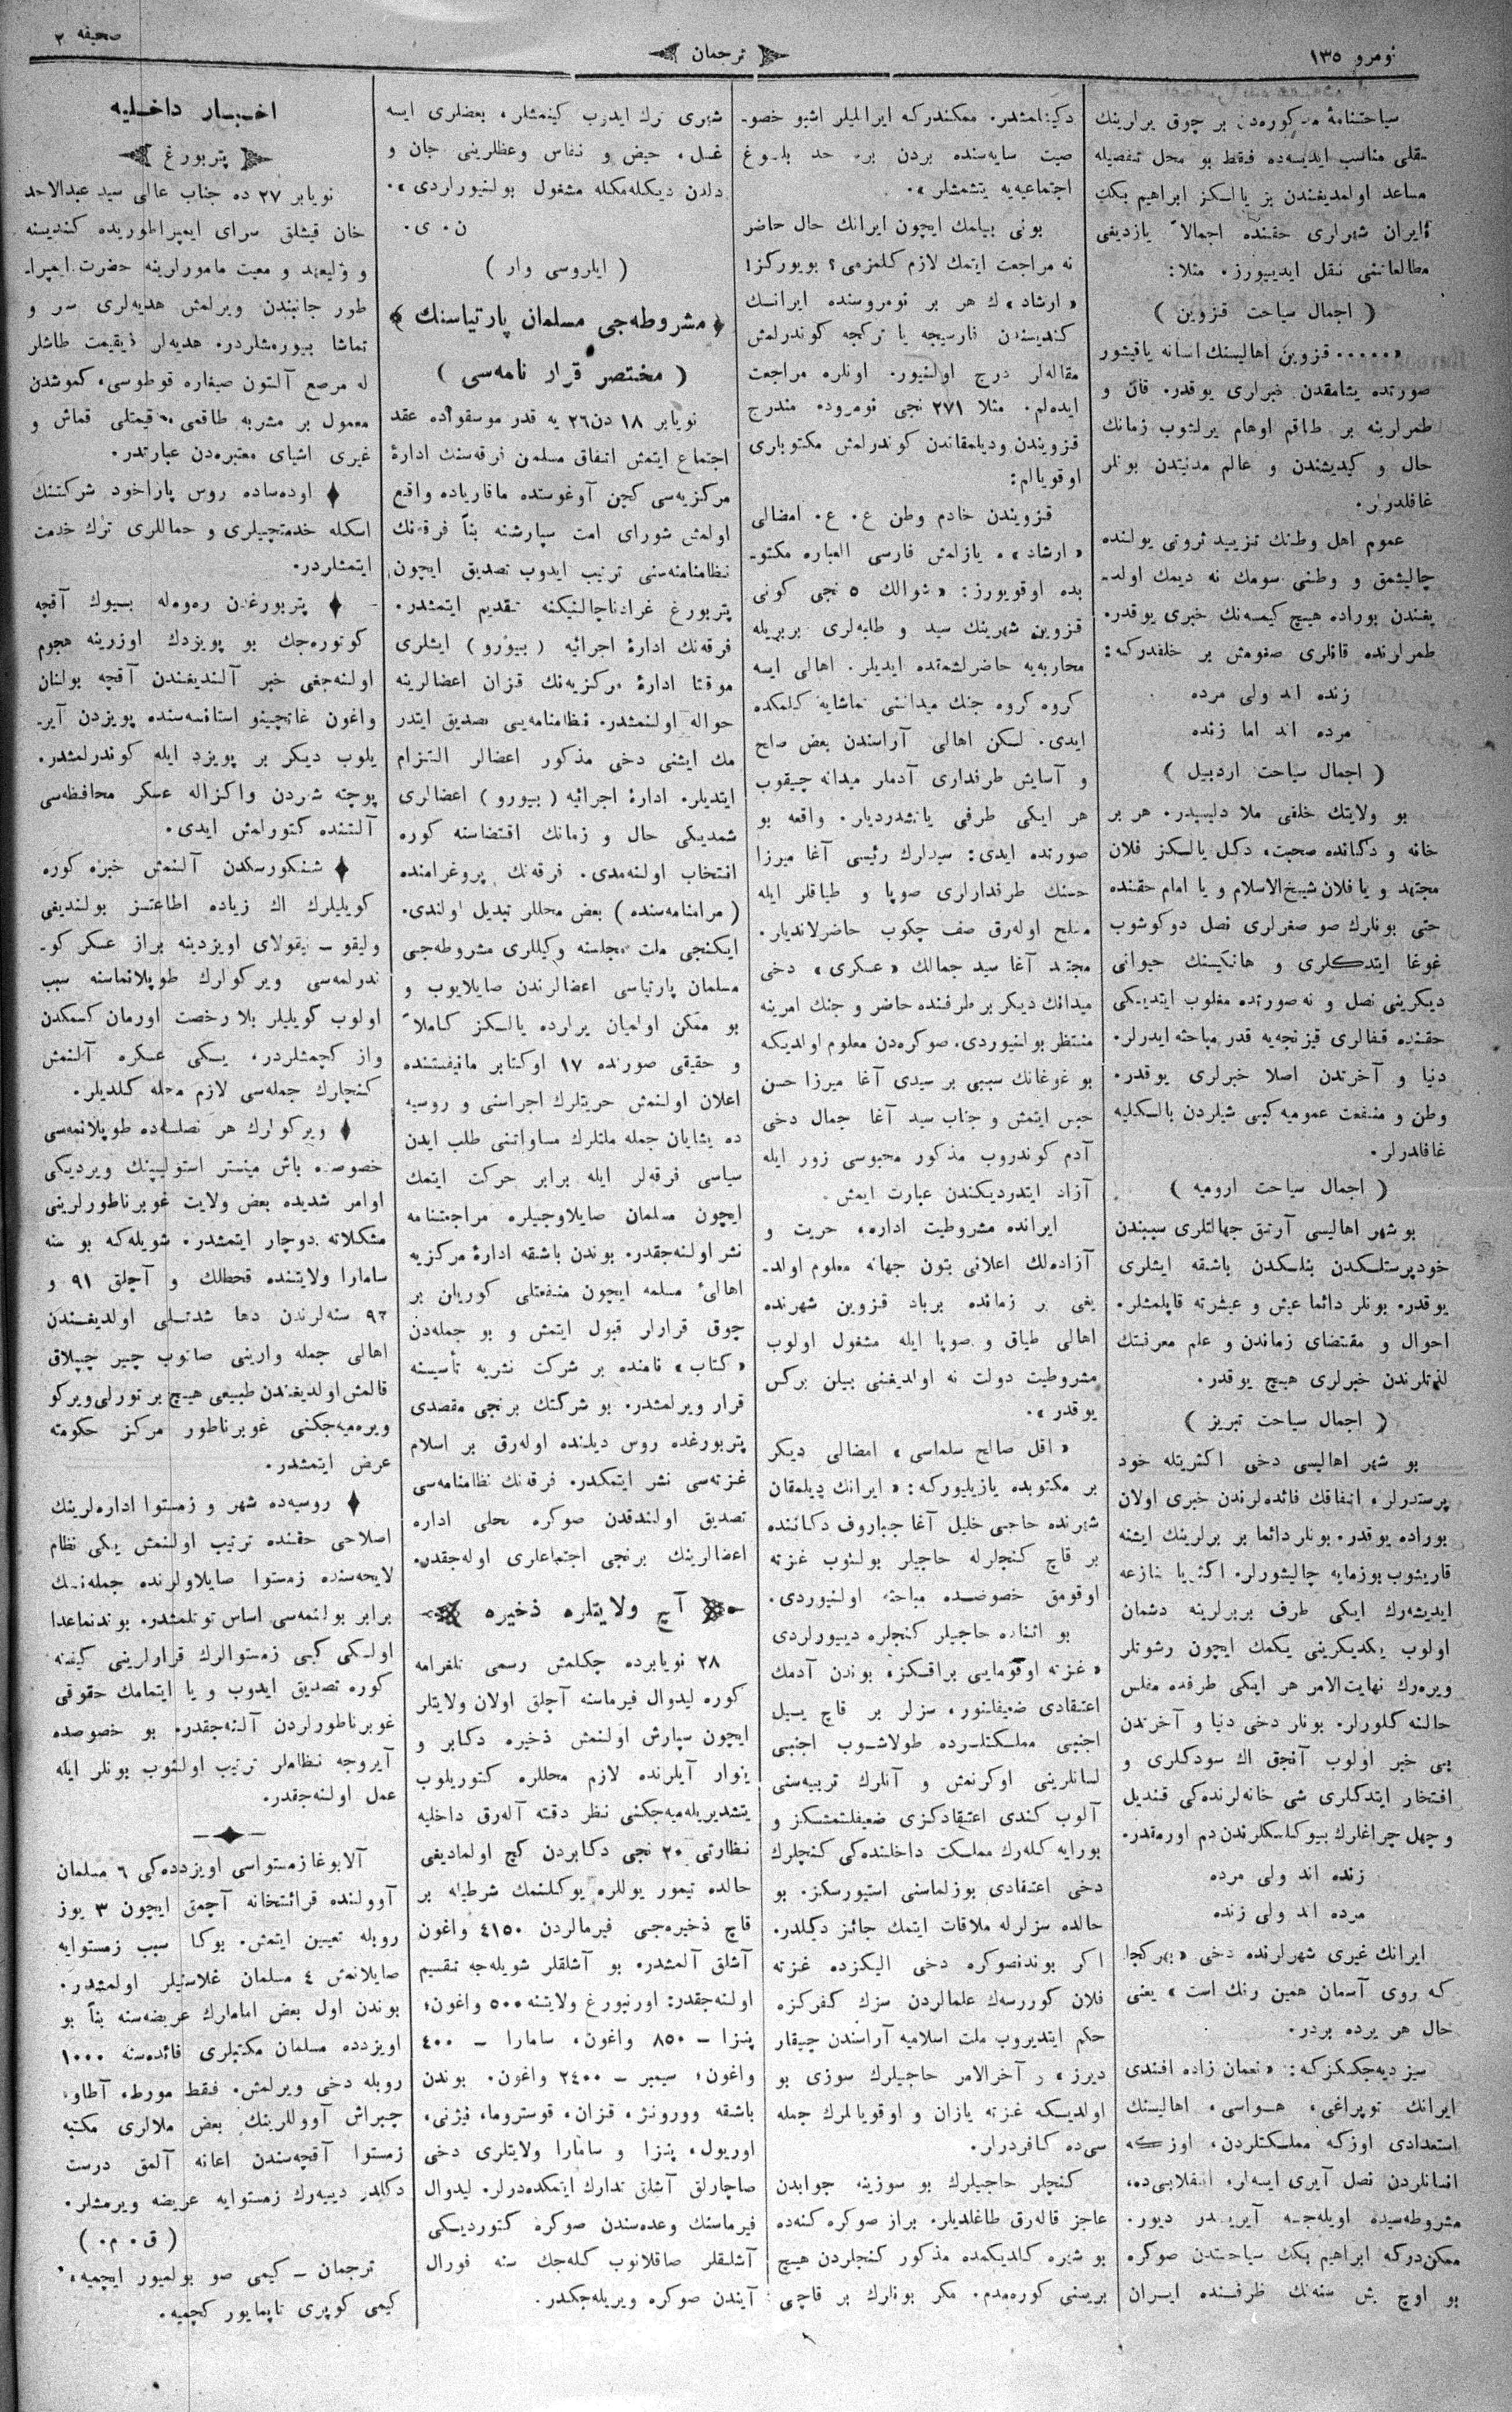 نومرو ١٣٥
ترجمان
صحیفه ٢
سیاحتنامهٔ مذکوره‌دن بر چوق یرلرینك
نقلی مناسب ایدیسه‌ده فقط بو محل تفصیله
مساعد اولمدیغندن بز یالـکز ابراهیم بکك
ایران شهرلری حقنده اجمالاً یازدیغی
مطالعاتنی نقل ایدییورز. مثلا:
( اجمال سیاحت قزوین )
«..... قزوین اهالیسنك انسانه یاقیشور
صورتده یشامقدن خبرلری یوقدر. قان و
طمرلرینه بر طاقم اوهام یرلشوب زمانك
حال و کیدیشندن و عالم مدنیتدن بونلر
غافلدرلر.
عموم اهل وطنك تزیید ثروتی یولنده
چالیشمق و وطنی سومك نه دیمك اولد-
یغندن بوراده هیچ کیمسه‌نك خبری یوقدر.
طمرلرنده قانلری صغومش بر خلقدرکه:
زنده اند ولی مرده
مرده اند اما زنده
( اجمال سیاحت اردبیل )
بو ولایتك خلقی ملا دلیسیدر. هر بر
خانه و دکانده صحبت، دکل یالـکز فلان
مجتهد و یا فلان شیخ‌الاسلام و یا امام حقنده
حتی بونلرك صو صغرلری نصل دوکوشوب
غوغا ایتدکلری و هانکیسنك حیوانی
دیکرینی نصل و نه صورتده مغلوب ایتدیـکی
حقنده قفالری قیزنجه‌یه قدر مباحثه ایدرلر.
دنیا و آخرتدن اصلا خبرلری یوقدر.
وطن و منفعت عمومیه کبی شیلردن بالـکلیه
غافلدرلر.
( اجمال سیاحت ارومیه )
بو شهر اهالیسی آرتق جهالتلری سببندن
خودپرستلـکدن بنلـکدن باشقه ایشلری
یوقدر. بونلر دائما عیش و عیشرته قاپلمشلر.
احوال و مقتضای زماندن و علم معرفتك
لذتلرندن خبرلری هیچ یوقدر.
( اجمال سیاحت تبریز )
بو شهر اهالیسی دخی اکثریتله خود
پرستدرلر، اتفاقك فائده‌لرندن خبری اولان
بوراده یوقدر. بونلر دائما بر برلرینك ایشنه
قاریشوب بوزمایه چالیشورلر. اکثریا منازعه
ایدیشه‌رك ایکی طرف بربرلرینه دشمان
اولوب یکدیکرینی یکمك ایچون رشوتلر
ویره‌رك نهایت‌الامر هر ایکی طرفده مفلس
حالنه کلورلر. بونلر دخی دنیا و آخرتدن
بی خبر اولوب آنجق اك سودکلری و
افتخار ایتدکلری شی خانه‌لرنده‌کی قندیل
و چهل چراغلرك بیوکلـکلرندن دم اورمقدر.
زنده اند ولی مرده
مرده اند ولی زنده
ایرانك غیری شهرلرنده دخی «بهر کجا
که روی آسمان همین رنك است» یعنی
حال هر یرده بردر.
سز دیه‌جکـکزکه: «نعمان زاده افندی
ایرانك توپراغی، هـواسی، اهالیسنك
استعدادی اوزکه مملـکتلردن، اوزکه
انسانلردن نصل آیری ایسه‌لر، انقلابی‌ده،
مشروطه‌سیده اویله‌جـه آیریـدر دیور.
ممکن‌درکه ابراهیم بکك سیاحتندن صوکره
بو اوچ بش سنه‌نك ظرفـنده ایـران
دکیشلمشدر. ممکندرکه ایرانلیلر اشبو خصو-
صیت سایه‌سنده بردن بره حد بلـوغ
اجتماعیه‌یه یتشمشلر».
بونی بیلمك ایچون ایرانك حال حاضر
نه مراجعت ایتمك لازم کلمزمی؟ بویورکز!
«ارشاد»ك هر بر نومروسنده ایرانـك
کندیسندن فارسیجه یا ترکجه کوندرلمش
مقاله‌لر درج اولنیور. اونلره مراجعت
ایده‌لم. مثلا ٢٧١ نجی نومروده مندرج
قزویندن و دیلمقاندن کوندرلمش مکتوبلری
اوقویالم:
قزویندن خادم وطن ع. ع. امضالی
«ارشاد»ه یازلمش فارسی العباره مکتو-
بده اوقویورز: «شوالك ٥ نجی کونی
قزوین شهرینك سید و طلبه‌لری بربریله
محاربه‌یه حاضرلشمقده ایدیلر. اهالی ایسه
کروه کروه جنك میداننی تماشایه کلمکده
ایدی. لـکن اهالی آراسندن بعض صلح
و آسایش طرفداری آدملر میدانه چیقوب
هر ایکی طرفی یاتشدردیلر. واقعه بو
صورتده ایدی: سیدلرك رئیسی آغا میرزا
حسنك طرفدارلری صوپا و طیاقلر ایله
مسلح اوله‌رق صف چکوب حاضرلاندیلر.
مجتهد آغا سید جمالك «عسکری» دخی
میدانك دیکر بر طرفنده حاضر و جنك امرینه
منتظر بولنیوردی. صوکره‌دن معلوم اولدیکه
بو غوغانك سببی بر سیدی آغا میرزا حسن
حبس ایتمش و جناب سید آغا جمال دخی
آدم کوندروب مذکور محبوسی زور ایله
آزاد ایتدردیکندن عبارت ایمش.
ایرانده مشروطیت اداره، حریت و
آزاده‌لك اعلانی بتون جهانه معلوم اولد-
یغی بر زمانده برباد قزوین شهرنده
اهالی طیاق و صوپا ایله مشغول اولوب
مشروطیت دولت نه اولدیغنی بیلن برکس
یوقدر».
«اقل صالح سلماسی» امضالی دیکر
بر مکتوبده یازیلیورکه: «ایرانك دیلمقان
شهرنده حاجی خلیل آغا جباروف دکاننده
بر قاچ کنجلرله حاجیلر بولنوب غزته
اوقومق خصوصـده مباحثه اولنیوردی.
بو اثناده حاجیلر کنجلره دییورلردی
«غزته اوقومایی براقـکز، بوندن آدمك
اعتقادی ضعیفلنور، سزلر بر قاچ یـیل
اجنبی مملـکتلـرده طولاشـوب اجنبی
لسانلرینی اوکرنمش و آنلرك تربیه‌سنی
آلوب کندی اعتقادکزی ضعیفلتمشـکز و
بورایه کله‌رك مملـکت داخلنده‌کی کنجلرك
دخی اعتقادی بوزلماسنی استیورسکز. بو
حالده سزلرله ملاقات ایتمك جائز دیکلدر.
اکر بوندنصوکره دخی الیکزده غزته
فلان کوررسه‌ك علمالردن سزك کفرکزه
حکم ایتدیروب ملت اسلامیه آراسندن چیقار
دیرز» و آخرالامر حاجیلرك سوزی بو
اولدیـکه غزته یازان و اوقویانلرك جمله
سی‌ده کافردرلر.
کنجلر حاجیلرك بو سوزینه جوابدن
عاجز قاله‌رق طاغلدیلر. براز صوکره کنه‌ده
بو شهره کلدیکمده مذکور کنجلردن هیچ
بریسنی کوره‌مدم. مکر بونلرك بر قاچی
شهری ترك ایدوب کیتمشلر، بعضلری ایسه
غسل، حیض و نفاس وعظلرینی جان و
دلدن دیکله‌مکله مشغول بولنیوراردی».
ن. ی.
( ایلروسی وار )
مشروطه‌جی مسلمان پارتیاسنك
( مختصر قرار نامه‌سی )
نویابر ١٨ دن ٢٦ یه قدر موسقواده عقد
اجتماع ایتمش اتفاق مسلمن فرقه‌سنك ادارهٔ
مرکزیه‌سی کچن آوغوستده ماقاریاده واقع
اولمش شورای امت سپارشنه بناً فرقه‌نك
نظامنامه‌سنی ترتیب ایدوب تصدیق ایچون
پتربورغ غرادناچالنیکنه تقدیم ایتمشدر.
فرقه‌نك ادارهٔ اجرائیه ( بیورو ) ایشلری
موقتا ادارهٔ مرکزیه‌نك قزان اعضالرینه
حواله اولنمشدر. نظامنامه‌یی تصدیق ایتدر
مك ایشنی دخی مذکور اعضالر التزام
ایتدیلر. ادارهٔ اجرائیه ( بیورو ) اعضالری
شمدیـکی حال و زمانك اقتضاسنه کوره
انتخاب اولنه‌مدی. فرقه‌نك پروغرامنده
( مرامنامه‌سنده ) بعض محللر تبدیل اولندی.
ایکنجی ملت مجلسنه وکیللری مشروطه‌جی
مسلمان پارتیاسی اعضالرندن صایلایوب و
بو ممکن اولمیان یرلرده یالـکز کاملاً
و حقیقی صورتده ١٧ اوکتابر مانیفستنده
اعلان اولنمش حریتلرك اجراسنی و روسیه
ده یشایان جمله ملتلرك مساواتنی طلب ایدن
سیاسی فرقه‌لر ایله برابر حرکت ایتمك
ایچون مسلمان صایلاوجیلره مراجعتنامه
نشر اولنه‌جقدر. بوندن باشقه ادارهٔ مرکزیه
اهالیٔ مسلمه ایچون منفعتلی کوریلن بر
چوق قرارلر قبول ایتمش و بو جمله‌دن
«کتاب» نامنده بر شرکت نشریه تأسیسنه
قرار ویرلمشدر. بو شرکتك برنجی مقصدی
پتربورغده روس دیلنده اوله‌رق بر اسلام
غزته‌سی نشر ایتمکدر. فرقه‌نك نظامنامه‌سی
تصدیق اولندقدن صوکره محلی اداره
اعضالرینك برنجی اجتماعلری اوله‌جقدر.
آچ ولایتلره ذخیره
٢٨ نویابرده چکلمش رسمی تلغرامه
کوره لیدوال فیرماسنه آچلق اولان ولایتلر
ایچون سپارش اولنمش ذخیره دکابر و
ینوار آیلرنده لازم محللره کتوریلوب
یتشدیریله‌میه‌جکنی نظر دقته آله‌رق داخلیه
نظارتی ٢٠ نجی دکابردن کچ اولمادیغی
حالده تیمور یوللره یوکلنمك شرطیله بر
قاچ ذخیره‌جی فیرمالردن ٤١٥٠ واغون
آشلق آلمشدر. بو آشلقلر شویله‌جه تقسیم
اولنه‌جقدر: اورنبورغ ولایتنه ٥٠٠ واغون،
پنزا — ٨٥٠ واغون، سامارا — ٤٠٠
واغون، سیمبر — ٢٤٠٠ واغون. بوندن
باشقه وورونژ، قزان، قوستروما، نیژنی،
اوریول، پنزا و سامارا ولایتلری دخی
صاچارلق آشلق تدارك ایتمکده‌درلر. لیدوال
فیرماسنك وعده‌سندن صوکره کتوردیـکی
آشلـقلر صاقلانوب کله‌جك سنه فورال
آیندن صوکره ویریله‌جکدر.
اخـبـار داخـلیه
پتربورغ
نویابر ٢٧ ده جناب عالی سید عبدالاحد
خان قیشلق سرای ایمپراطوریده کندیسنه
و ولیعهد و معیت مامورلرینه حضرت ایمپرا-
طور جانبندن ویرلمش هدیه‌لری سیر و
تماشا بیورمشلردر. هدیه‌لر ذیقیمت طاشلر
له مرصع آلتون صیغاره قوطوسی، کموشدن
معمول بر مشربه طاقمی، قیمتلی قماش و
غیری اشیای معتبره‌دن عبارتدر.
اوده‌ساده روس پاراخود شرکتنك
اسکله خدمتچیلری و حماللری ترك خدمت
ایتمشلردر.
پتربورغدن ره‌وه‌له بـیوك آقچه
کوتوره‌جك بو پویزدك اوزرینه هجوم
اولنه‌جغی خبر آلندیغندن آقچه بولنان
واغون غاتچینو استانسه‌سنده پویزدن آیر-
یلوب دیکر بر پویزد ایله کوندرلمشدر.
پوچته شاردن واکزاله عسکر محافظه‌سی
آلتنده کتورلمش ایدی.
شتکورسکدن آلنمش خبره کوره
کویلیلرك اك زیاده اطاعتـز بولندیغی
ولیقو — نیقولای اویزدینه براز عسکر کو-
ندرلمه‌سی ویرکولرك طوپلانماسنه سبب
اولوب کویلیلر بلا رخصت اورمان کسمکدن
واز کچمشلردر. یـکی عسکره آلنمش
کنجلرك جمله‌سی لازم محله کلدیلر.
ویرکولرك هر نصلسه‌ده طوپلانمه‌سی
خصوصده باش مینیستر استولیپینك ویردیکی
اوامر شدیده بعض ولایت غوبرناطورلرینی
مشکلاته دوچار ایتمشدر. شویله‌که بو سنه
سامارا ولایتنده قحطلك و آچلق ٩١ و
٩٢ سنه‌لرندن دها شدتـلی اولدیغـندن
اهالی جمله وارینی صاتوب چیر چیپلاق
قالمش اولدیغندن طبیعی هیچ بر تورلی ویرکو
ویره‌میه‌جکنی غوبرناطور مرکز حکومته
عرض ایتمشدر.
روسیه‌ده شهر و زمستوا اداره‌لرینك
اصلاحی حقنده ترتیب اولنمش یکی نظام
لایحه‌سنده زمستوا صایلاولرنده جمله‌نـك
برابر بولنمه‌سی اساس توتلمشدر. بوندنماعدا
اولـکی کبی زمستوالرك قرارلرینی کیفنه
کوره تصدیق ایدوب و یا ایتمامك حقوقی
غوبرناطورلردن آلنه‌جقدر. بو خصوصده
آیروجه نظاملر ترتیب اولنوب بونلر ایله
عمل اولنه‌جقدر.
آلابوغا زمستواسی اویزدده‌کی ٦ مسلمان
آوولنده قرائتخانه آچمق ایچون ٣ یوز
روبله تعیین ایتمش. بوکا سبب زمستوایه
صایلانمش ٤ مسلمان غلاسنیلر اولمشدر.
بوندن اول بعض اماملرك عریضه‌سنه بناً بو
اویزدده مسلمان مکتبلری فائده‌سنه ١٠٠٠
روبله دخی ویرلمش. فقط مورط، آطاو،
چبراش آووللرینك بعض ملالری مکتبه
زمستوا آقچه‌سندن اعانه آلمق درست
دکلدر دییه‌رك زمستوایه عریضه ویرمشلر.
( ق. م. )
ترجمان — کیمی صو بولمیور ایچمیه،
کیمی کوپری تاپمایور کچمیه.